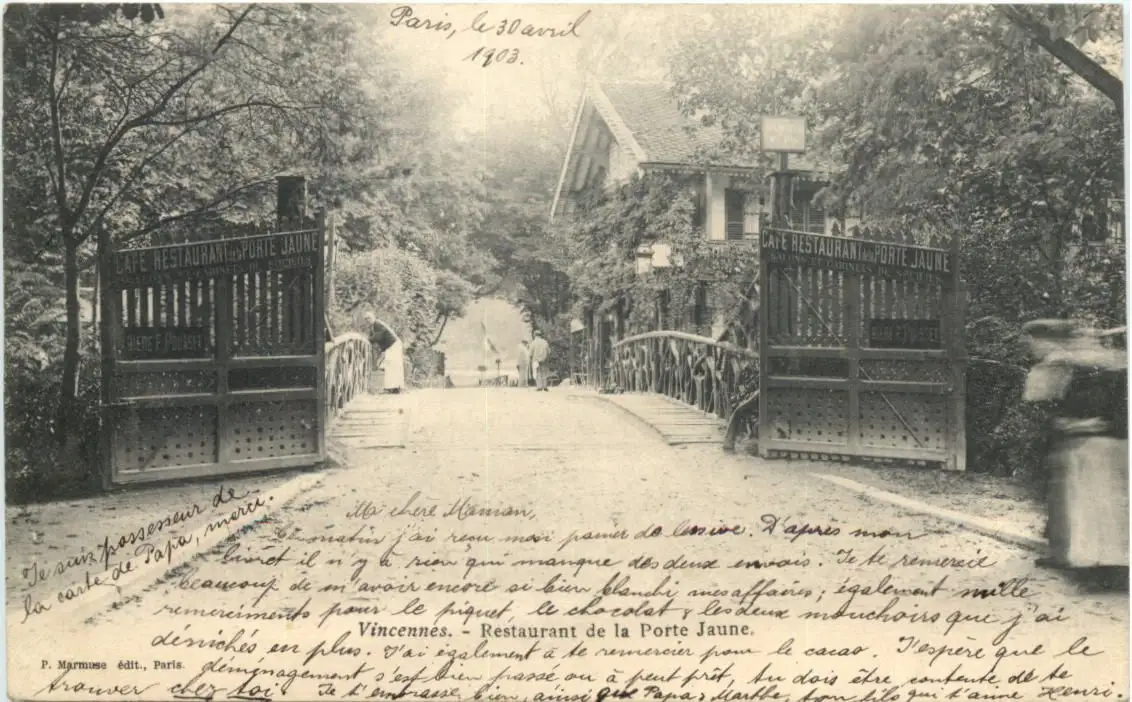 Paris, le 30 avril
1903.
CAFÉ RESTAURANT DE LA PORTE JAUNE
BIÈRE F. POUSSET
CAFÉ RESTAURANT DE LA PORTE JAUNE
Ma chère Maman,
Ce matin j'ai reçu mon panier de lessive. D'après mon
livret il n'y a rien qui manque des deux envois. Je te remercie
beaucoup de m'avoir encore si bien blanchi mes affaires; également mille
remerciments pour le piquet, le chocolat & les deux mouchoirs que j'ai
dénichés en plus. J'ai également à te remercier pour le cacao. J'espère que le
déménagement s'est bien passé ou à peut près, tu dois être contente de te
trouver chez toi. Je t'embrasse bien, ainsi que Papa & Marthe, ton fils qui t'aime Henri.
Je suis possesseur de
la carte de Papa, merci.
Vincennes. - Restaurant de la Porte Jaune.
P. Marmuse édit., Paris.